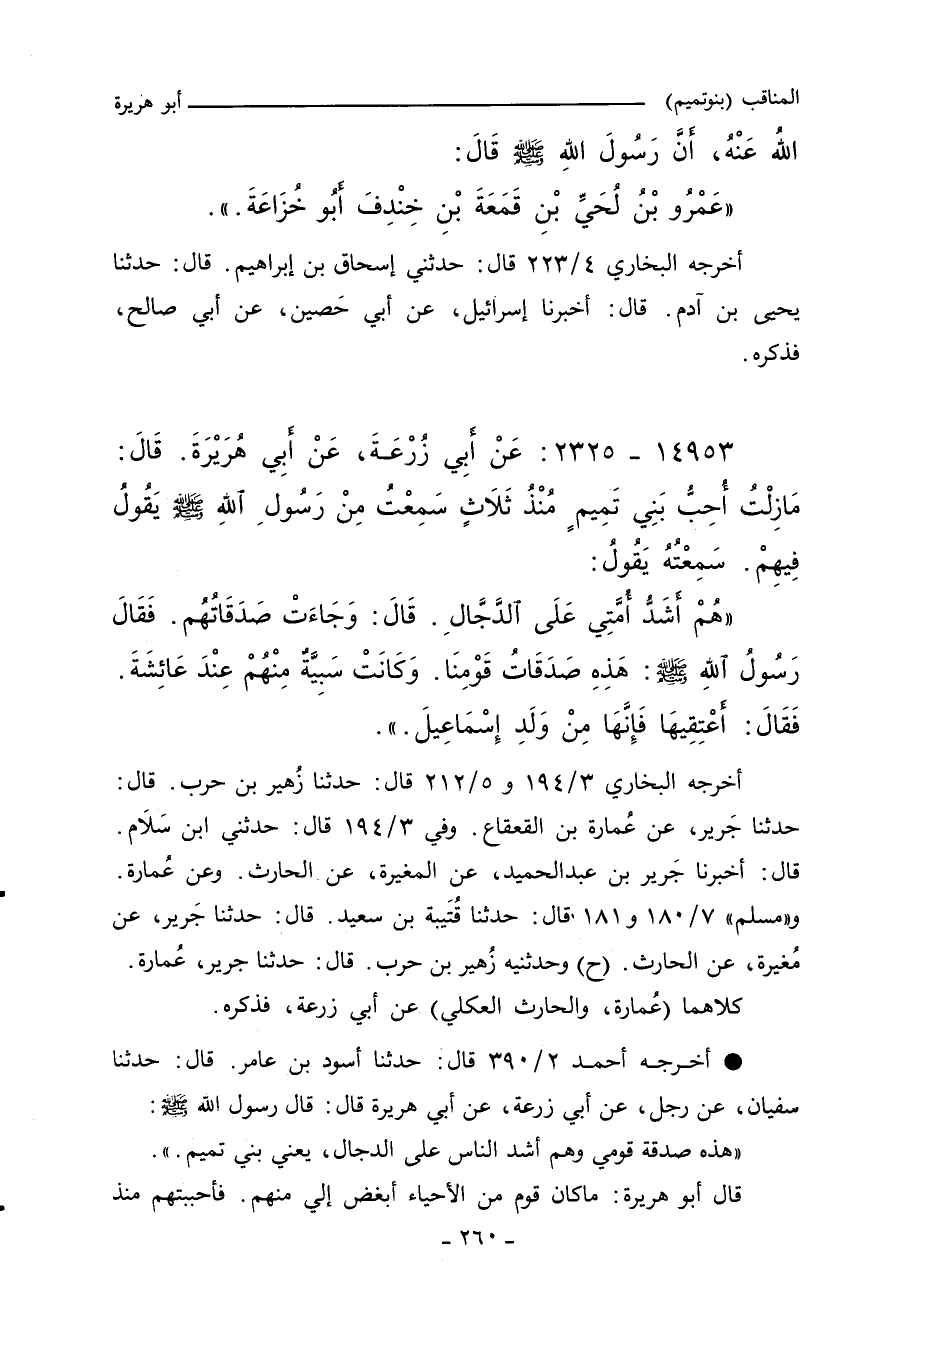 المناقب (بنوتميم) ــــــــــ أبو هريرة
اللهُ عَنْهُ، أَنَّ رَسُولَ اللهِ ﷺ قَالَ:
«عَمْرُو بْنُ لُحَيِّ بْنِ قَمَعَةَ بْنِ خِنْدِفَ أَبُو خُزَاعَةَ.».
أخرجه البخاري ٢٢٣/٤ قال: حدثني إسحاق بن إبراهيم. قال: حدثنا
يحيى بن آدم. قال: أخبرنا إسرائيل، عن أبي حَصين، عن أبي صالح،
فذكره.
١٤٩٥٣ ـ ٢٣٢٥: عَنْ أَبِي زُرْعَةَ، عَنْ أَبِي هُرَيْرَةَ. قَالَ:
مَازِلْتُ أُحِبُّ بَنِي تَمِيمٍ مُنْذُ ثَلَاثٍ سَمِعْتُ مِنْ رَسُولِ ٱللهِ ﷺ يَقُولُ
فِيهِمْ. سَمِعْتُهُ يَقُولُ:
«هُمْ أَشَدُّ أُمَّتِي عَلَى ٱلدَّجَّالِ. قَالَ: وَجَاءَتْ صَدَقَاتُهُم. فَقَالَ
رَسُولُ ٱللهِ ﷺ: هَذِهِ صَدَقَاتُ قَوْمِنَا. وَكَانَتْ سَبِيَّةٌ مِنْهُمْ عِنْدَ عَائِشَةَ.
فَقَالَ: أَعْتِقِيهَا فَإِنَّهَا مِنْ وَلَدِ إِسْمَاعِيلَ.».
أخرجه البخاري ١٩٤/٣ و ٢١٢/٥ قال: حدثنا زُهير بن حرب. قال:
حدثنا جَرير، عن عُمارة بن القعقاع. وفي ١٩٤/٣ قال: حدثني ابن سَلَام.
قال: أخبرنا جَرير بن عبدالحميد، عن المغيرة، عن الحارث. وعن عُمارة.
و«مسلم» ١٨٠/٧ و١٨١ قال: حدثنا قُتَيبة بن سعيد. قال: حدثنا جَرير، عن
مُغيرة، عن الحارث. (ح) وحدثنيه زُهير بن حرب. قال: حدثنا جرير، عُمارة.
كلاهما (عُمارة، والحارث العكلي) عن أبي زرعة، فذكره.
● أخرجه أحمد ٣٩٠/٢ قال: حدثنا أسود بن عامر. قال: حدثنا
سفيان، عن رجل، عن أبي زرعة، عن أبي هريرة قال: قال رسول الله ﷺ:
«هذه صدقة قومي وهم أشد الناس على الدجال، يعني بني تميم.».
قال أبو هريرة: ماكان قوم من الأحياء أبغض إلي منهم. فأحببتهم منذ
ـ ٢٦٠ ـ